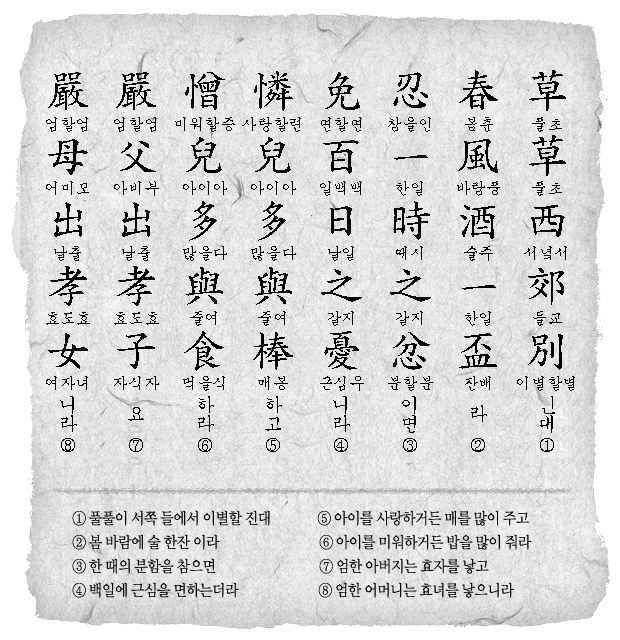 草 풀초 草 풀초 西 서녘서 郊 들교 別 이별할별 인대 ①
春 봄춘 風 바람풍 酒 술주 一 한일 盃 잔배 라 ②
忍 참을인 一 한일 時 때시 之 갈지 忿 분할분 이면 ③
免 면할면 百 일백백 日 날일 之 갈지 憂 근심우 니라 ④
憐 사랑할련 兒 아이아 多 많을다 與 줄여 棒 매봉 하고 ⑤
憎 미워할증 兒 아이아 多 많을다 與 줄여 食 먹을식 하라 ⑥
嚴 엄할엄 父 아비부 出 날출 孝 효도효 子 자식자 요 ⑦
嚴 엄할엄 母 어미모 出 날출 孝 효도효 女 여자녀 니라 ⑧
① 풀풀이 서쪽 들에서 이별할 진대
② 봄 바람에 술 한잔 이라
③ 한 때의 분함을 참으면
④ 백일에 근심을 면하는더라
⑤ 아이를 사랑하거든 매를 많이 주고
⑥ 아이를 미워하거든 밥을 많이 줘라
⑦ 엄한 아버지는 효자를 낳고
⑧ 엄한 어머니는 효녀를 낳으니라